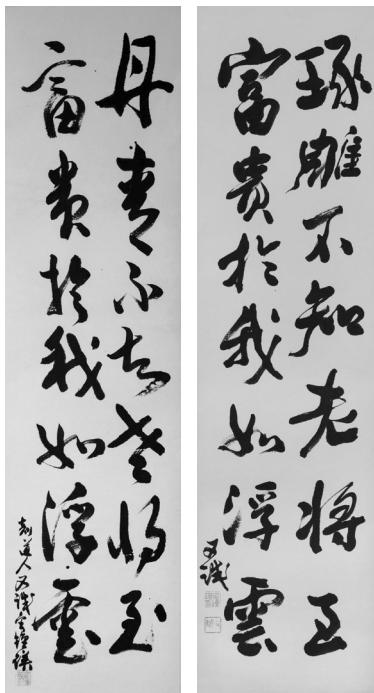 琢雕不知老將至
富貴於我如浮雲
又識
丹青不知老將至
富貴於我如浮雲
道人又識